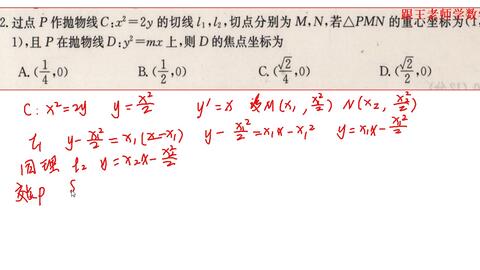 跟王老师学数
2.过点 P 作抛物线 C:x²=2y 的切线 l₁,l₂,切点分别为 M,N,若△PMN 的重心坐标为(1,
1),且 P 在抛物线 D:y²=mx 上,则 D 的焦点坐标为
A.(1/4,0) B.(1/2,0) C.(√2/4,0) D.(√2/2,0)
C: x²=2y y=x²/2 y'=x 设M(x₁,x₁²/2) N(x₂,x₂²/2)
l₁ y-x₁²/2=x₁(x-x₁) y-x₁²/2=x₁x-x₁² y=x₁x-x₁²/2
同理 l₂ y=x₂x-x₂²/2
交点P